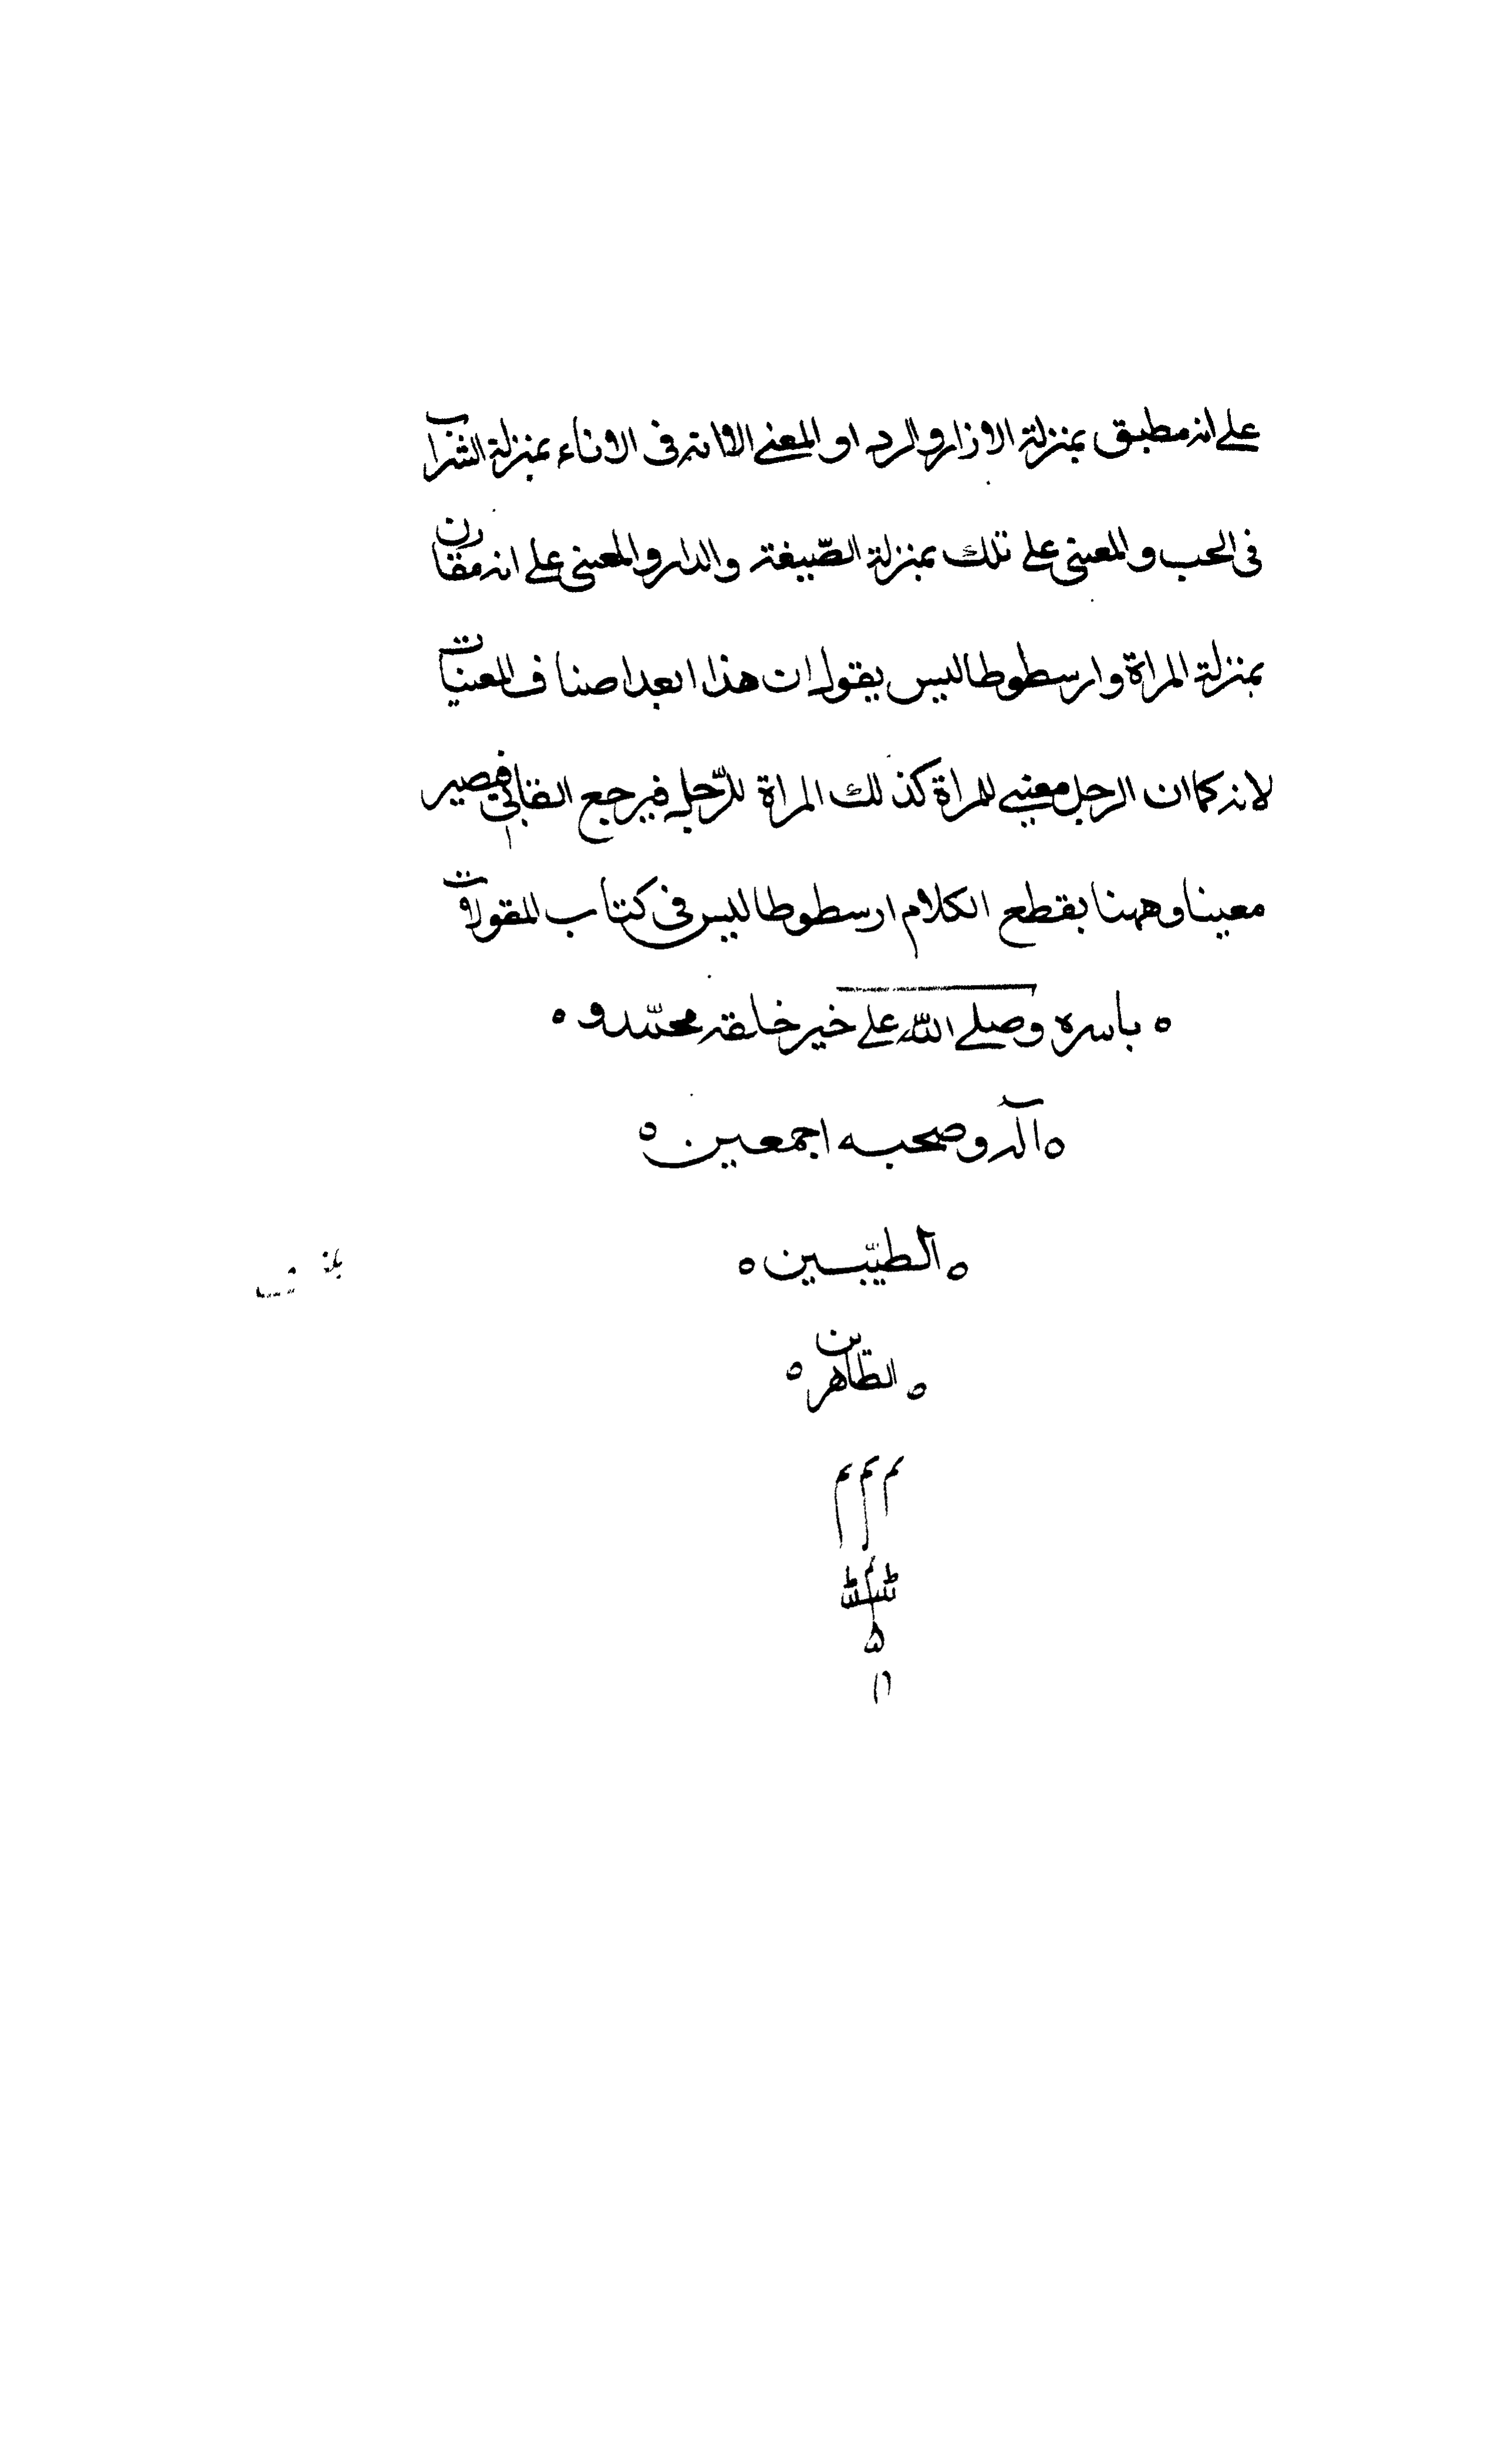 على انه مطبق بمنزلة الازار والرد او المعنى الانه فى الاناء بمنزلة الشراب
فى الحب والمعنى على تلك بمنزلة الضيغة والدار والمعنى على انه مقارن
بمنزلة المراة وارسطوطاليس يقول ان هذا ابعد اصناف المعينات
لانه كما ان الرجل معنى للمراة كذلك المراة للرّجل فيرجع القانى فيصير
معينا وههنا يقطع الكلام ارسطوطاليس فى كتاب المقولات
ه باسره وصلى الله على خير خلقه محمّد و ه
ه آله وصحبه اجمعين ه
ه الطيّبين ه
ه الطاهرين ه
م م م